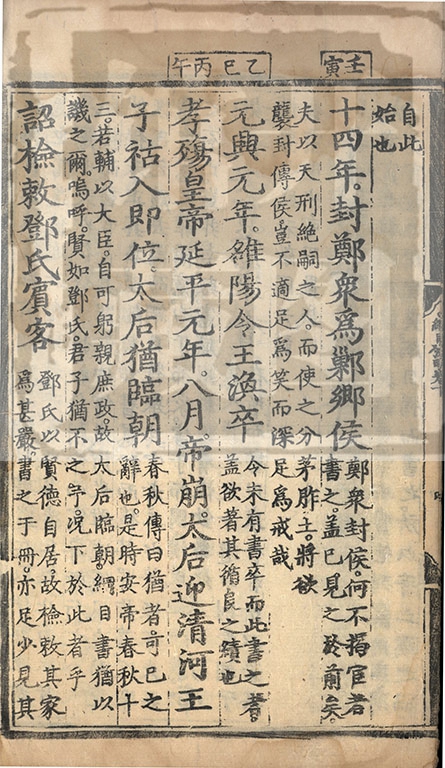 壬寅
乙巳
丙午
自此
始也
十四年。封鄭衆爲鄛鄉侯
鄭衆封侯。何不揭宦者
書之。盖已見之於前矣。
夫以天刑絶嗣之人。而使之分茅胙土。將欲
襲封傳侯。豈不適足爲笑而深足爲戒哉
元興元年。雒陽令王渙卒
令未有書卒。而此書之者。
盖欲著其循良之績也
孝殤皇帝延平元年。八月帝崩。太后迎清河王
子祜入即位。太后猶臨朝
春秋傳曰猶者可已之
辭也。是時安帝春秋十
三。若輔以大臣。自可躬親庶政。故太后臨朝。綱目書猶以
譏之爾。嗚呼。賢如鄧氏。君子猶不之予。况下於此者乎
詔檢敕鄧氏賓客
鄧氏以賢德自居。故檢敕其家
爲甚嚴。書之于冊。亦足少見其